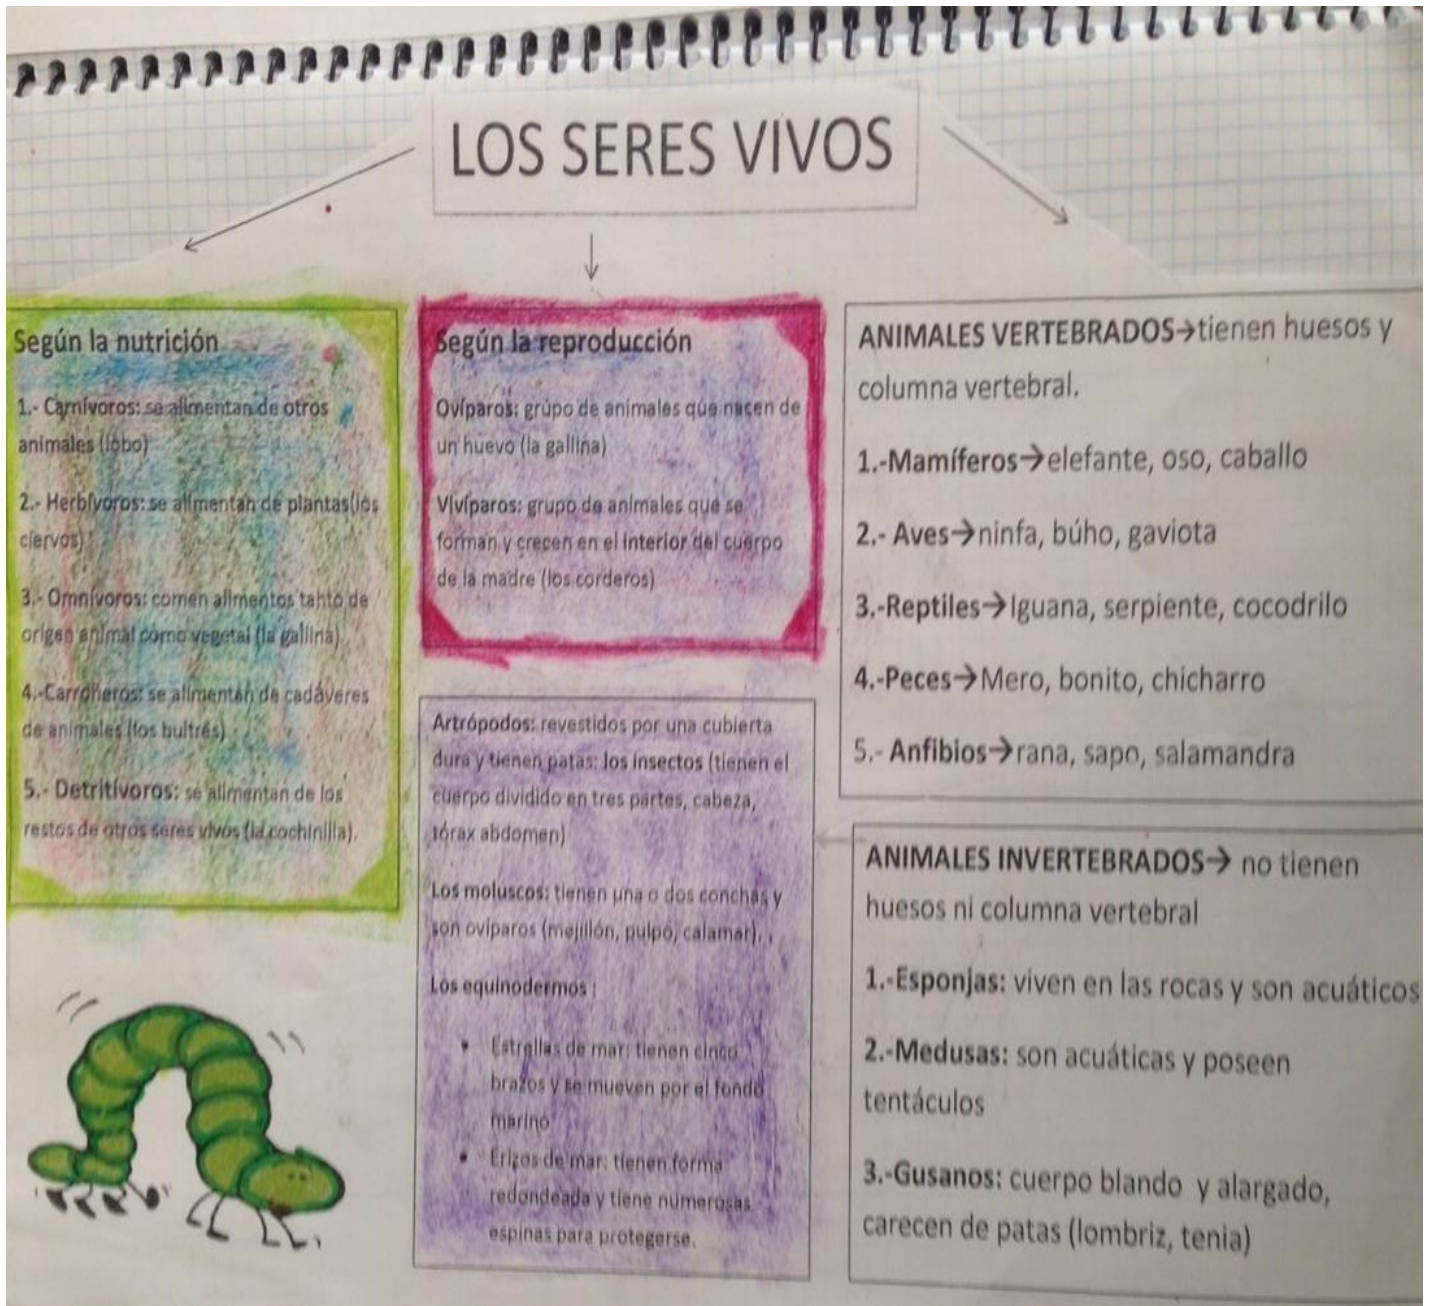 LOS SERES VIVOS
Según la nutrición
1.- Carnívoros: se alimentan de otros
animales (lobo)
2.- Herbívoros: se alimentan de plantas(los
ciervos)
3.- Omnívoros: comen alimentos tanto de
origen animal como vegetal (la gallina)
4.-Carroñeros: se alimentan de cadáveres
de animales (los buitres)
5.- Detritívoros: se alimentan de los
restos de otros seres vivos (la cochinilla).
Según la reproducción
Ovíparos: grupo de animales que nacen de
un huevo (la gallina)
Vivíparos: grupo de animales que se
forman y crecen en el interior del cuerpo
de la madre (los corderos)
Artrópodos: revestidos por una cubierta
dura y tienen patas: los insectos (tienen el
cuerpo dividido en tres partes, cabeza,
tórax abdomen)
Los moluscos: tienen una o dos conchas y
son ovíparos (mejillón, pulpo, calamar).
Los equinodermos :
• Estrellas de mar: tienen cinco
brazos y se mueven por el fondo
marino
• Erizos de mar: tienen forma
redondeada y tiene numerosas
espinas para protegerse.
ANIMALES VERTEBRADOS→tienen huesos y
columna vertebral.
1.-Mamíferos→elefante, oso, caballo
2.- Aves→ninfa, búho, gaviota
3.-Reptiles→Iguana, serpiente, cocodrilo
4.-Peces→Mero, bonito, chicharro
5.- Anfibios→rana, sapo, salamandra
ANIMALES INVERTEBRADOS→ no tienen
huesos ni columna vertebral
1.-Esponjas: viven en las rocas y son acuáticos
2.-Medusas: son acuáticas y poseen
tentáculos
3.-Gusanos: cuerpo blando y alargado,
carecen de patas (lombriz, tenia)